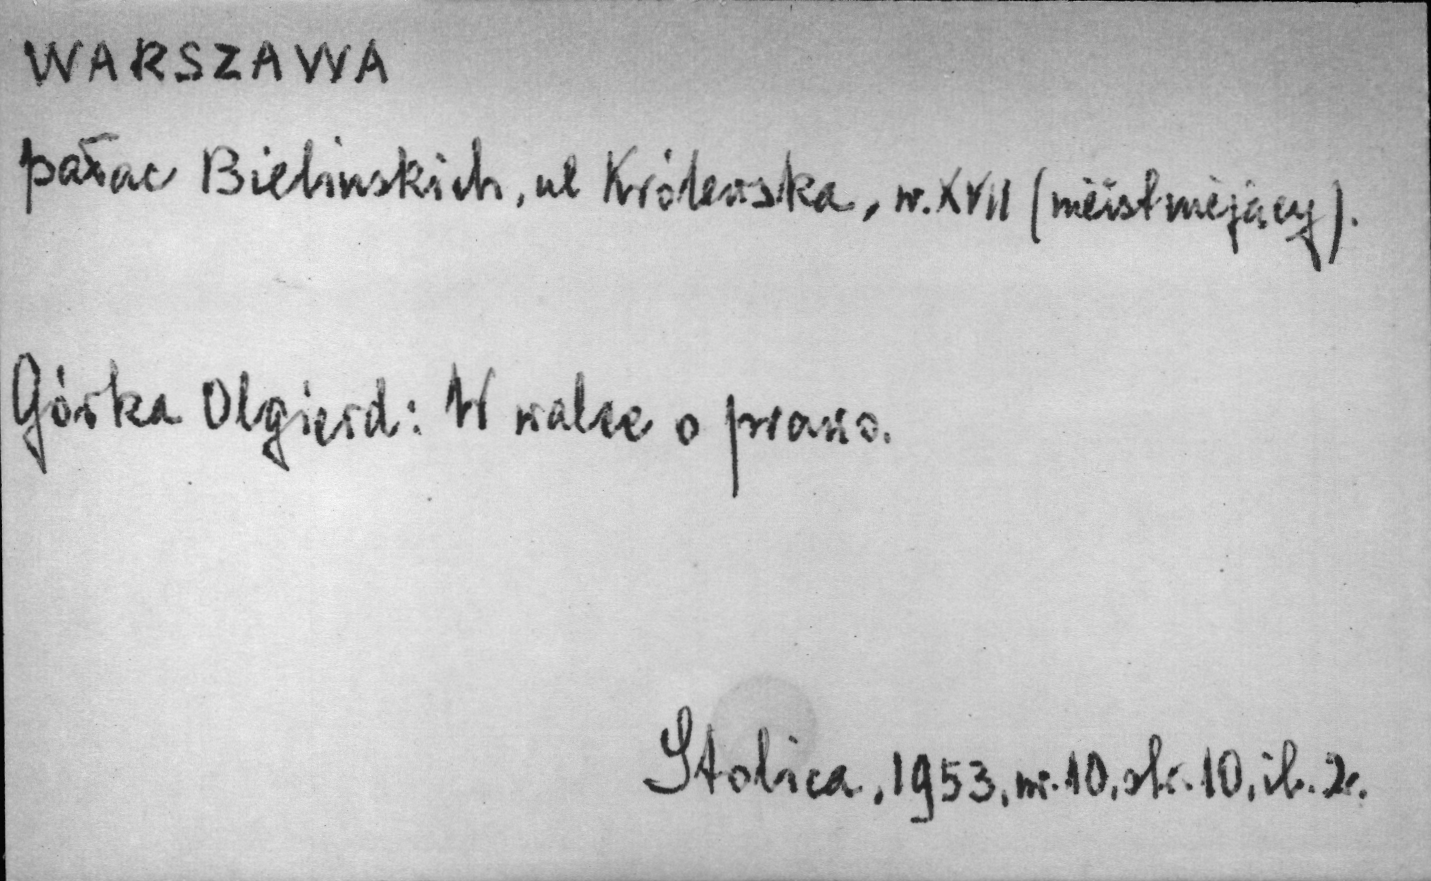 WARSZAWA
pałac Bielinskich, ul Królewska, w. XVII (nieistniejący).
Górka Olgierd: W walce o prawo.
Stolica, 1953, nr. 10, str. 10, il. 2.